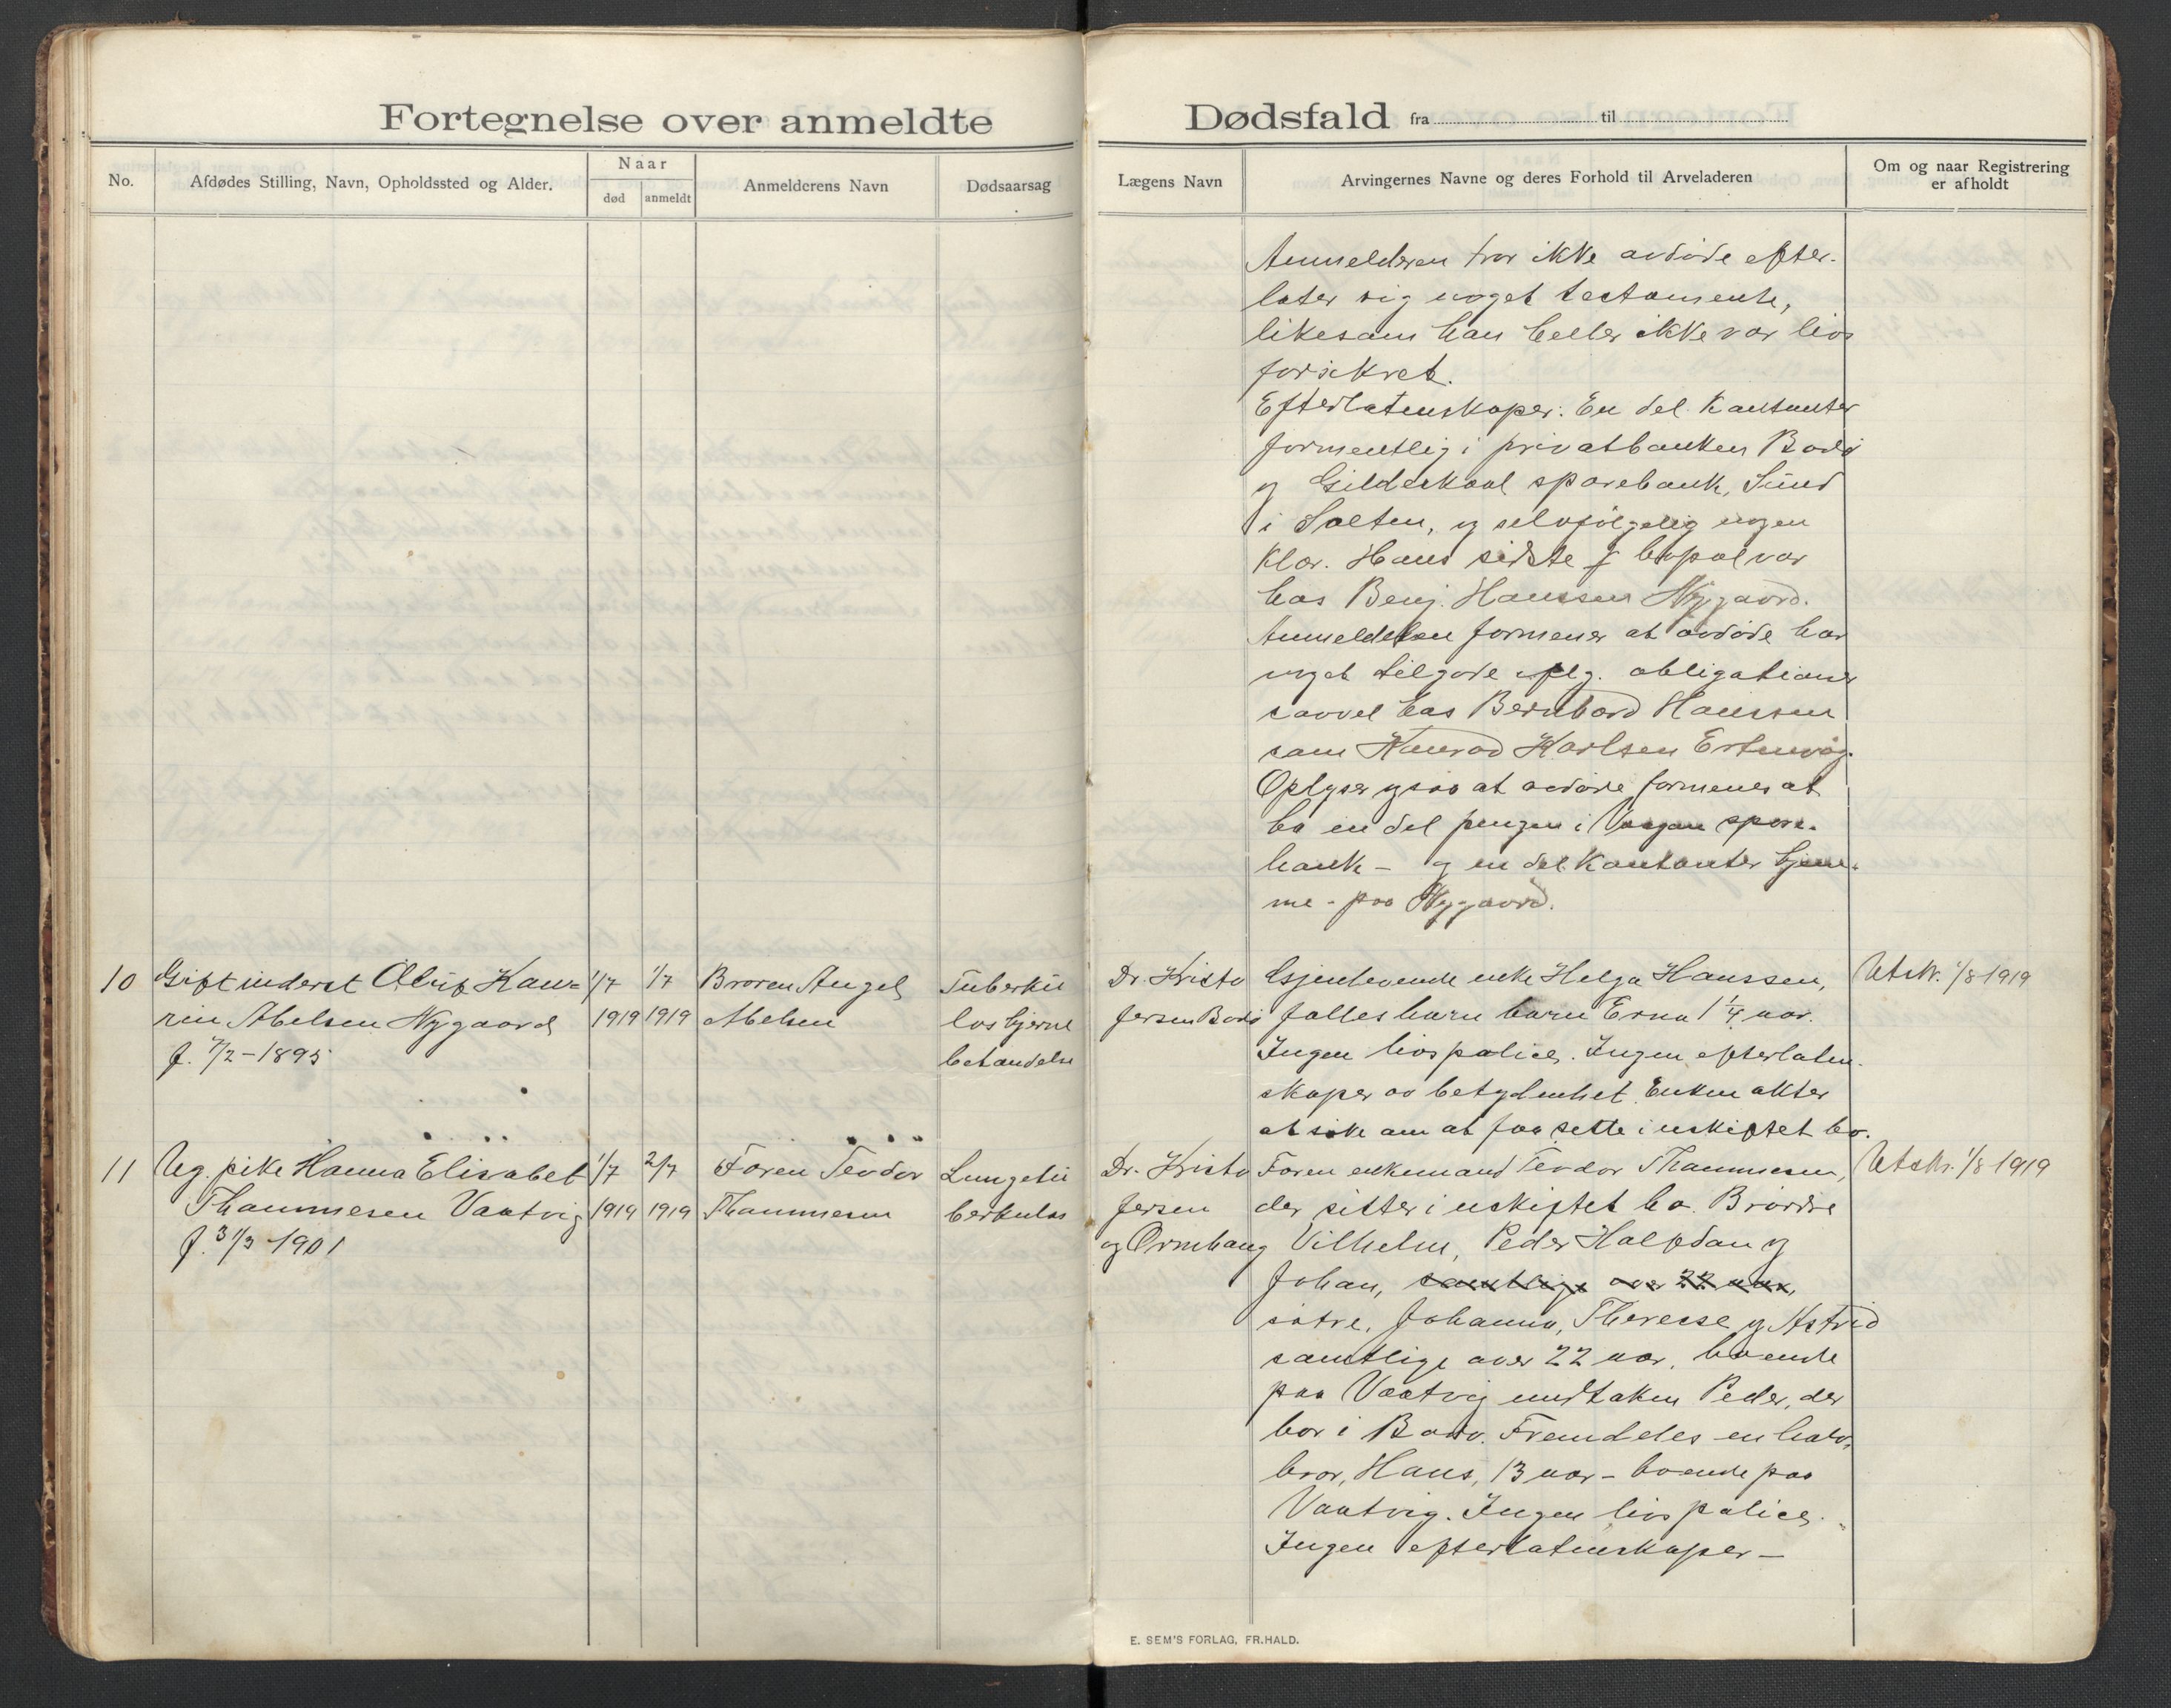 Fortegnelse over anmeldte Dødsfald fra til
No.
Afdødes Stilling, Navn, Opholdssted og Alder.
Naar
død anmeldt
Anmelderens Navn
Dødsaarsag
Lægens Navn
Arvingernes Navne og deres Forhold til Arveladeren
Om og naar Registrering
er afholdt
Anmelderen tror ikke avdøde efter-
later sig noget testamente,
likesom han heller ikke var livs
forsikret.
Efterlatenskaper: En del kontanter
formentlig i privatbanken Bodø
og Gildeskaal sparebank, Sund
i Salten, og selvfølgelig nogen
klær. Hans sidste bopæl var
hos Benj. Hanssen Nygaard.
Anmelderen formener at avdøde har
noget tilgode iflg. obligationer
saavel hos Bernhard Hanssen
som Konrad Karlsen Ertenvåg.
Oplyser ogsaa at avdøde formenes at
ha en del penger i Vaagan spare-
bank - og en del kontanter hjem-
me - paa Nygaard.
10
Gift inderst Oluf Kaw-
rin Abelsen Nygaard
f. 7/2-1895
1/7
1919
1/7
1919
Broren Angel
Abelsen
Tuberku
los hjerne
betændelse
Dr. Kristo
fersen Bodø
Gjenlevende enke Helga Hanssen,
fælles barn barn Erna 1 1/4 aar.
Ingen livspolice. Ingen efterlaten-
skaper av betydenhet. Enken akter
at søke om at faa sitte i uskiftet bo.
Utskr. 1/8 1919
11
Ug. pike Hanna Elisabet
Thommesen Vaatvig
f. 31/3 1901
1/7
1919
2/7
1919
Faren Teodor
Thommesen
Lungetu
berkulos
Dr. Kristo
fersen
og Ormhaug
Faren enkemand Teodor Thommesen,
der sitter i uskiftet bo. Brødre
Vilhelm, Peder Halfdan og
Johan, samtlige over 22 aar,
søtre, Johanna, Therese og Astrid
samtlige over 22 aar, boende
paa Vaatvig undtaken Peder, der
bor i Bodø. Fremdeles en halv-
bror, Hans, 13 aar - boende paa
Vaatvig. Ingen livspolice.
Ingen efterlatenskaper -
Utskr. 1/8 1919
E. SEM'S FORLAG, FR.HALD.